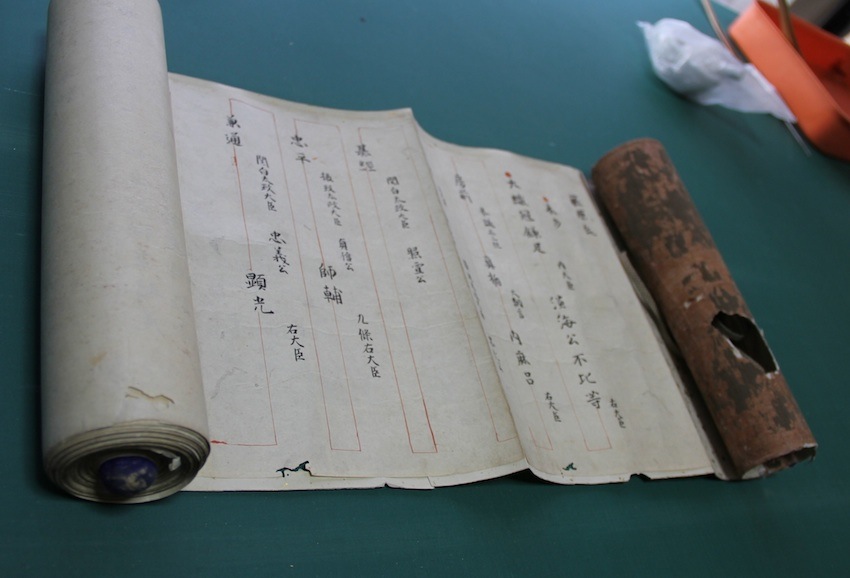 大織冠鎌足
内大臣
淡海公不比等
右大臣
房前
真楯
大納言
内麻呂
右大臣
基經
関白太政大臣
照宣公
忠平
摂政太政大臣
貞信公
師輔
九條右大臣
兼通
関白太政大臣
忠義公
顕光
右大臣